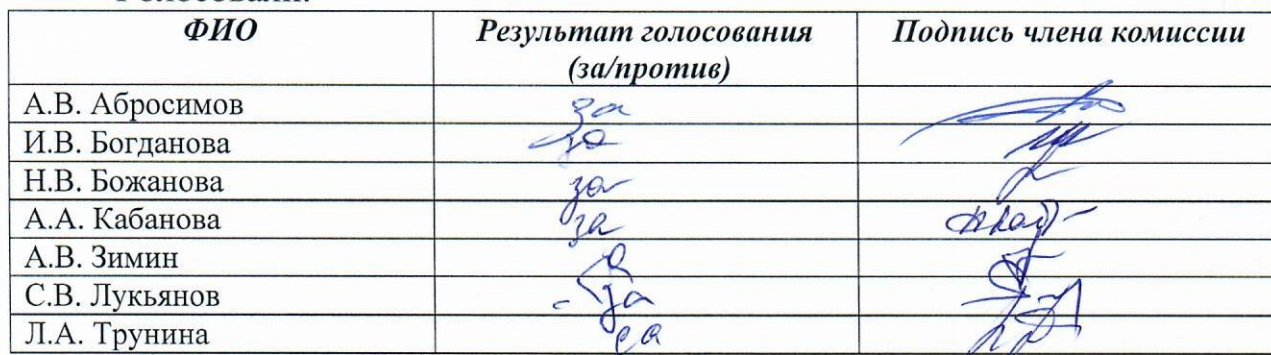 ФИО Результат голосования Подпись члена комиссии
(за/против)
А.В. Абросимов за
И.В. Богданова за
Н.В. Божанова за
А.А. Кабанова за
А.В. Зимин
С.В. Лукьянов за
Л.А. Трунина за